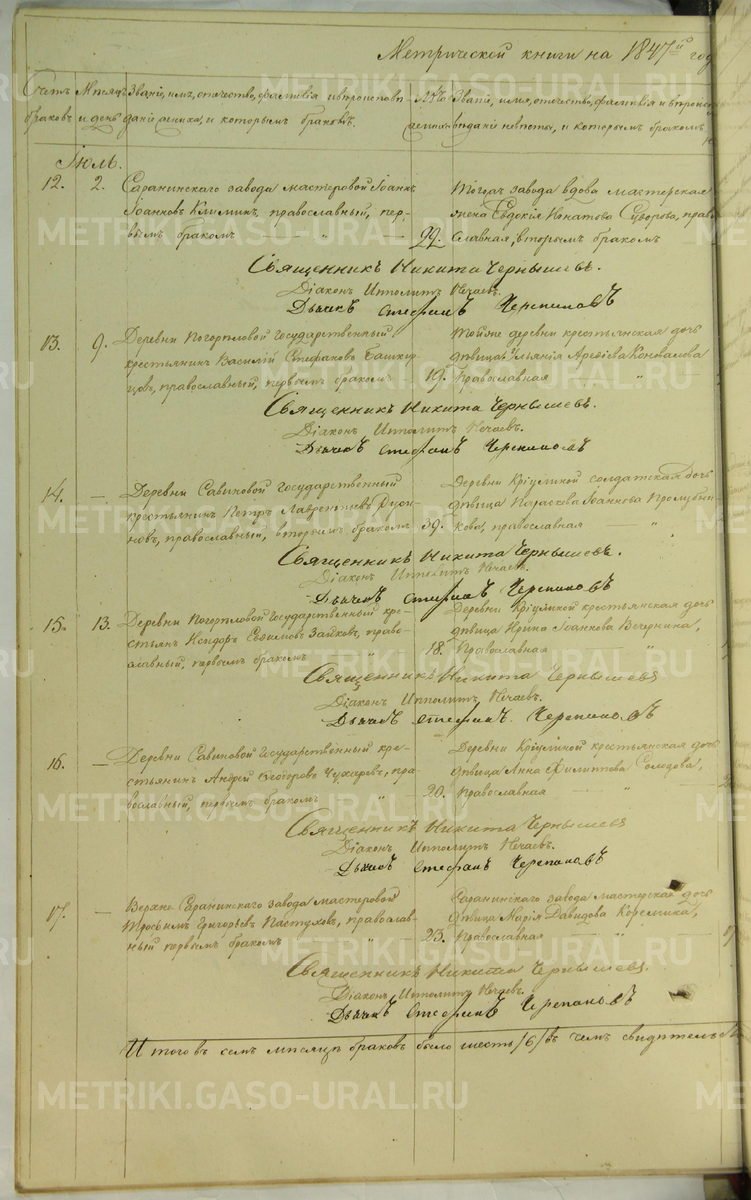 Метрической книги на 1847й год
Счетъ браковъ
Мѣсяцъ и день
Званіе, имя, отчество, фамилія и вѣроисповѣданіе жениха, и которымъ бракомъ.
Лѣта жениха
Званіе, имя, отчество, фамилія и вѣроисповѣданіе невѣсты, и которымъ бракомъ
Іюль.
12. 2. Саранинскаго завода мастеровой Іоаннъ
Іоанновъ Климинъ, православный, пер-
вымъ бракомъ — „ — 22.
Тогожъ завода вдова мастерская
жена Евдокія Игнатова Суворова, право
славная, вторымъ бракомъ
Священникъ Никита Чернышевъ.
Діаконъ Ипполитъ Нечаевъ.
Дьячекъ Стефанъ Черепановъ
13. 9. Деревни Погорѣловой Государственный
крестьянинъ Василій Стефановъ Башкир-
цовъ, православный, первымъ бракомъ 19.
Тойже деревни крестьянская дочь
дѣвица Ульянія Конвалова
Православная — „
Священникъ Никита Чернышевъ.
Діаконъ Ипполитъ Нечаевъ.
Дьячекъ Стефанъ Черепановъ
14. — Деревни Савиновой Государственный
крестьянинъ Петръ Лаврентіевъ
новъ, православный, вторымъ бракомъ 39.
Деревни Кріулиной солдатская дочь
дѣвица Параскева Іоаннова
кова, православная — „
Священникъ Никита Чернышевъ.
Діаконъ Ипполитъ Нечаевъ.
Дьячекъ Стефанъ Черепановъ
15. 13. Деревни Погорѣловой Государственный кре-
стьян. Исидоръ Евфимовъ Зайковъ, право-
славный, первымъ бракомъ „ 18.
Деревни Кріулиной крестьянская дочь
дѣвица Ирина Іоаннова Вечернина,
Православная — „
Священникъ Никита Чернышевъ
Діаконъ Ипполитъ Нечаевъ.
Дьячекъ Стефанъ Черепановъ
16. — Деревни Савиновой Государственный кре-
стьянинъ Андрей Чухаревъ, пра-
вославный, первымъ бракомъ „ — 20.
Деревни Кріулиной крестьянская дочь
дѣвица Анна Филиппова
Православная — „
Священникъ Никита Чернышевъ
Діаконъ Ипполитъ Нечаевъ.
Дьячекъ Стефанъ Черепановъ
17. — Верхне Саранинскаго завода мастеровой
Трофимъ Григорьевъ Пастуховъ, православ-
ный первымъ бракомъ „ 23.
Саранинскаго завода мастерская дочь
дѣвица Марія Давидова
Православная — „
Священникъ Никита Чернышевъ.
Діаконъ Ипполитъ Нечаевъ.
Дьячекъ Стефанъ Черепановъ
Итого въ семъ мѣсяцѣ браковъ было шесть /6/ въ чемъ свидѣтель
METRIKI.GASO-URAL.RU